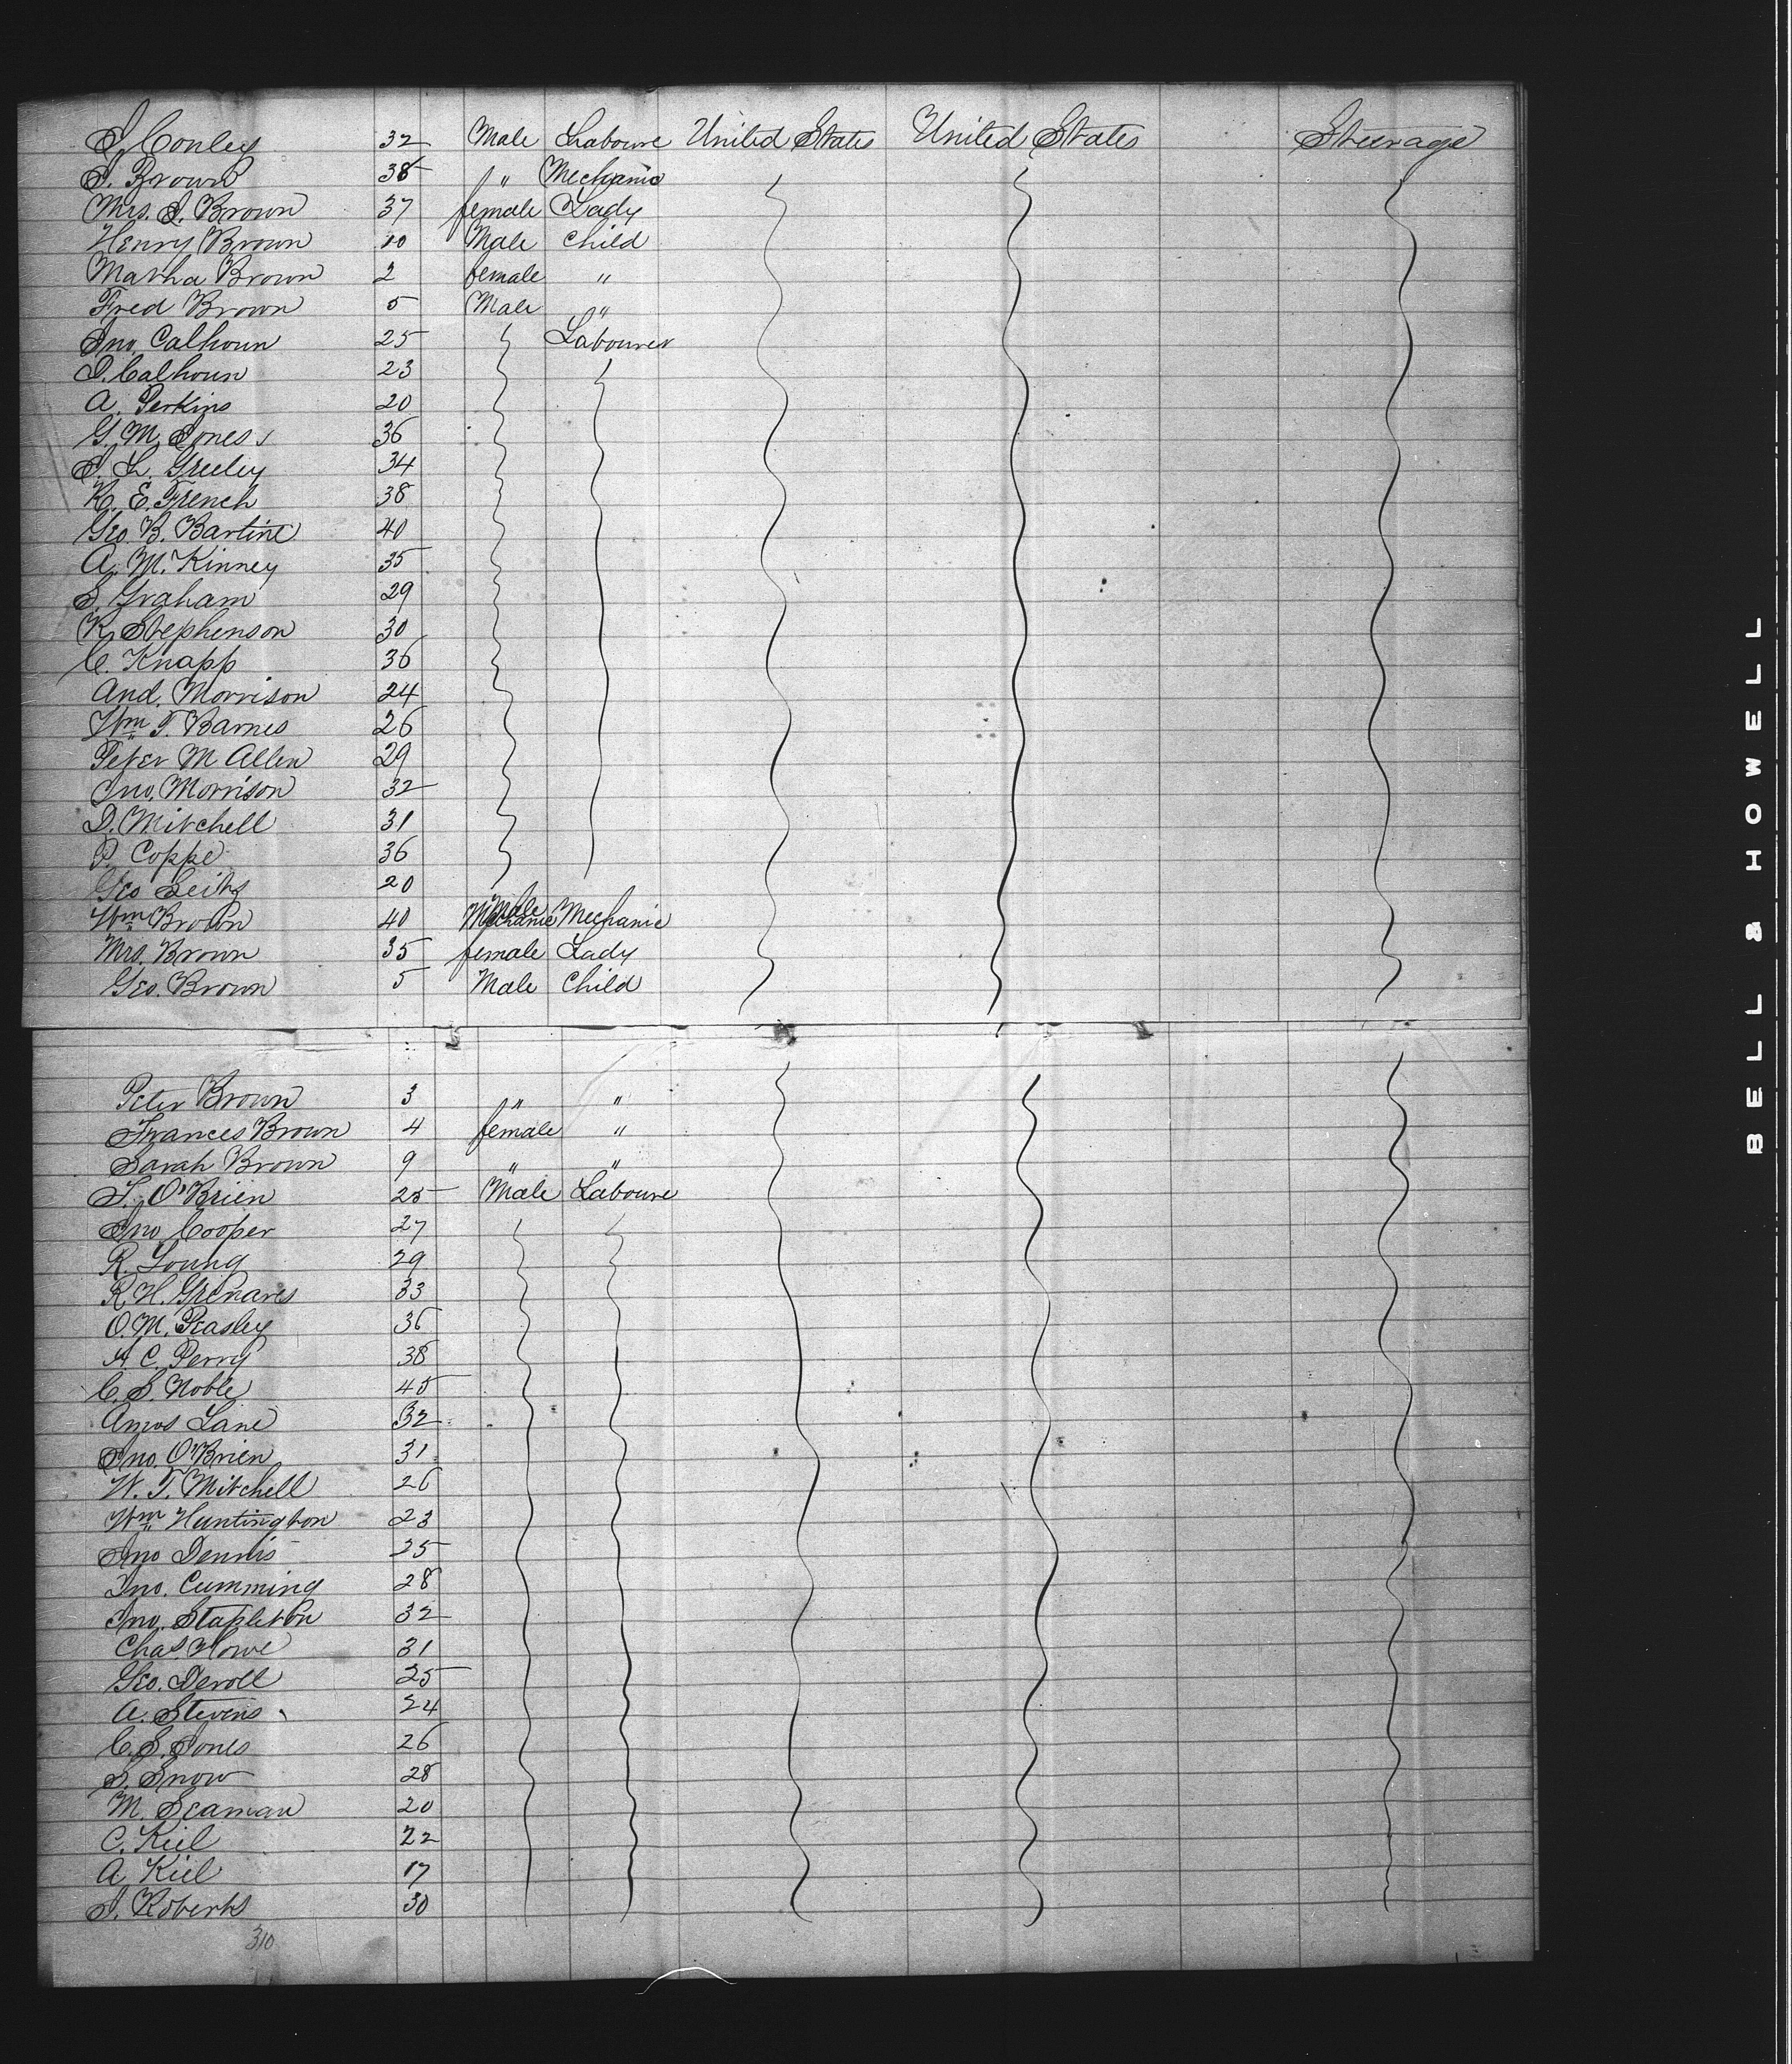 J. Conley 32 Male Laboure United States United States Steerage
J. Brown 38 " Mechanic
Mrs. J. Brown 37 female Lady
Henry Brown 10 Male Child
Martha Brown 2 female "
Fred Brown 5 Male "
Jno. Calhoun 25 Labourer
J. Calhoun 23
A. Perkins 20
G. M. Jones 36
J. L. Greeley 34
R. E. French 38
Geo. B. Bartine 40
A. M. Kinney 35
S. Graham 29
R. Stephenson 30
C. Knapp 36
And. Morrison 24
Wm T. Barnes 26
Peter M Allen 29
Jno. Morrison 32
D. Mitchell 31
P. Coppe 36
Geo 20
Wm Brown 40 Male Mechanic Mechanic
Mrs. Brown 35 female Lady
Geo. Brown 5 Male Child
Peter Brown 3 " "
Frances Brown 4 female "
Sarah Brown 9 " "
T. O'Brien 25 Male Laboure
Jno Cooper 27
R. Young 29
R. H. 33
O. M. Peasley 36
A. C. Perry 38
C. S. Noble 45
Amos Lane 32
Jno. O'Brien 31
W. T. Mitchell 26
Wm Huntington 23
Jno Dennis 25
Jno. Cumming 28
Jno. Stapleton 32
Chas. Howe 31
Geo. Deroll 25
A. Stevens 24
C. S. Jones 26
S. Snow 28
M. Seaman 20
C. Kiel 22
A. Kiel 17
J. Roberts 30
310
BELL & HOWELL